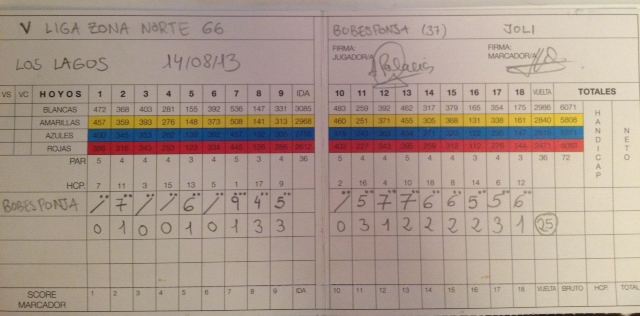 V LIGA ZONA NORTE 66 BOBESPONJA (37) JOLI
FIRMA: JUGADOR/A FIRMA: MARCADOR/A
LOS LAGOS 14/08/13
VS VC HOYOS 1 2 3 4 5 6 7 8 9 IDA 10 11 12 13 14 15 16 17 18 VUELTA TOTALES
BLANCAS 472 368 403 281 155 392 536 147 331 3085 483 259 392 462 317 379 165 354 175 2986 6071
AMARILLAS 457 359 393 276 148 373 508 141 313 2968 460 251 371 455 305 368 131 338 161 2840 5808
AZULES
ROJAS
HANDICAP NETO
PAR 5 4 4 4 3 4 5 3 4 36 5 4 4 5 4 4 3 4 3 36 72
HCP. 7 11 3 15 13 5 1 17 9 2 16 4 10 18 8 14 6 12
BOBESPONJA / 7 / / 6 / 9 4 5 / 5 7 7 6 6 5 5 6
0 1 0 0 1 0 1 3 3 0 3 1 2 2 2 2 3 1 25
SCORE MARCADOR 1 2 3 4 5 6 7 8 9 IDA 10 11 12 13 14 15 16 17 18 VUELTA BRUTO HCP. TOTAL